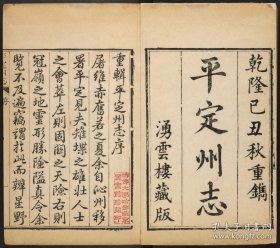 乾隆己丑秋重鐫
平定州志
湧雲樓藏版
重輯平定州志序
屠維赤奮若之夏余自沁州移
署平定見夫雉堞之雄壮人士
之會萃左則固關之天險右則
冠嶺之地靈形勝險隘真令余
覽不及遍竊謂於此而辨星野